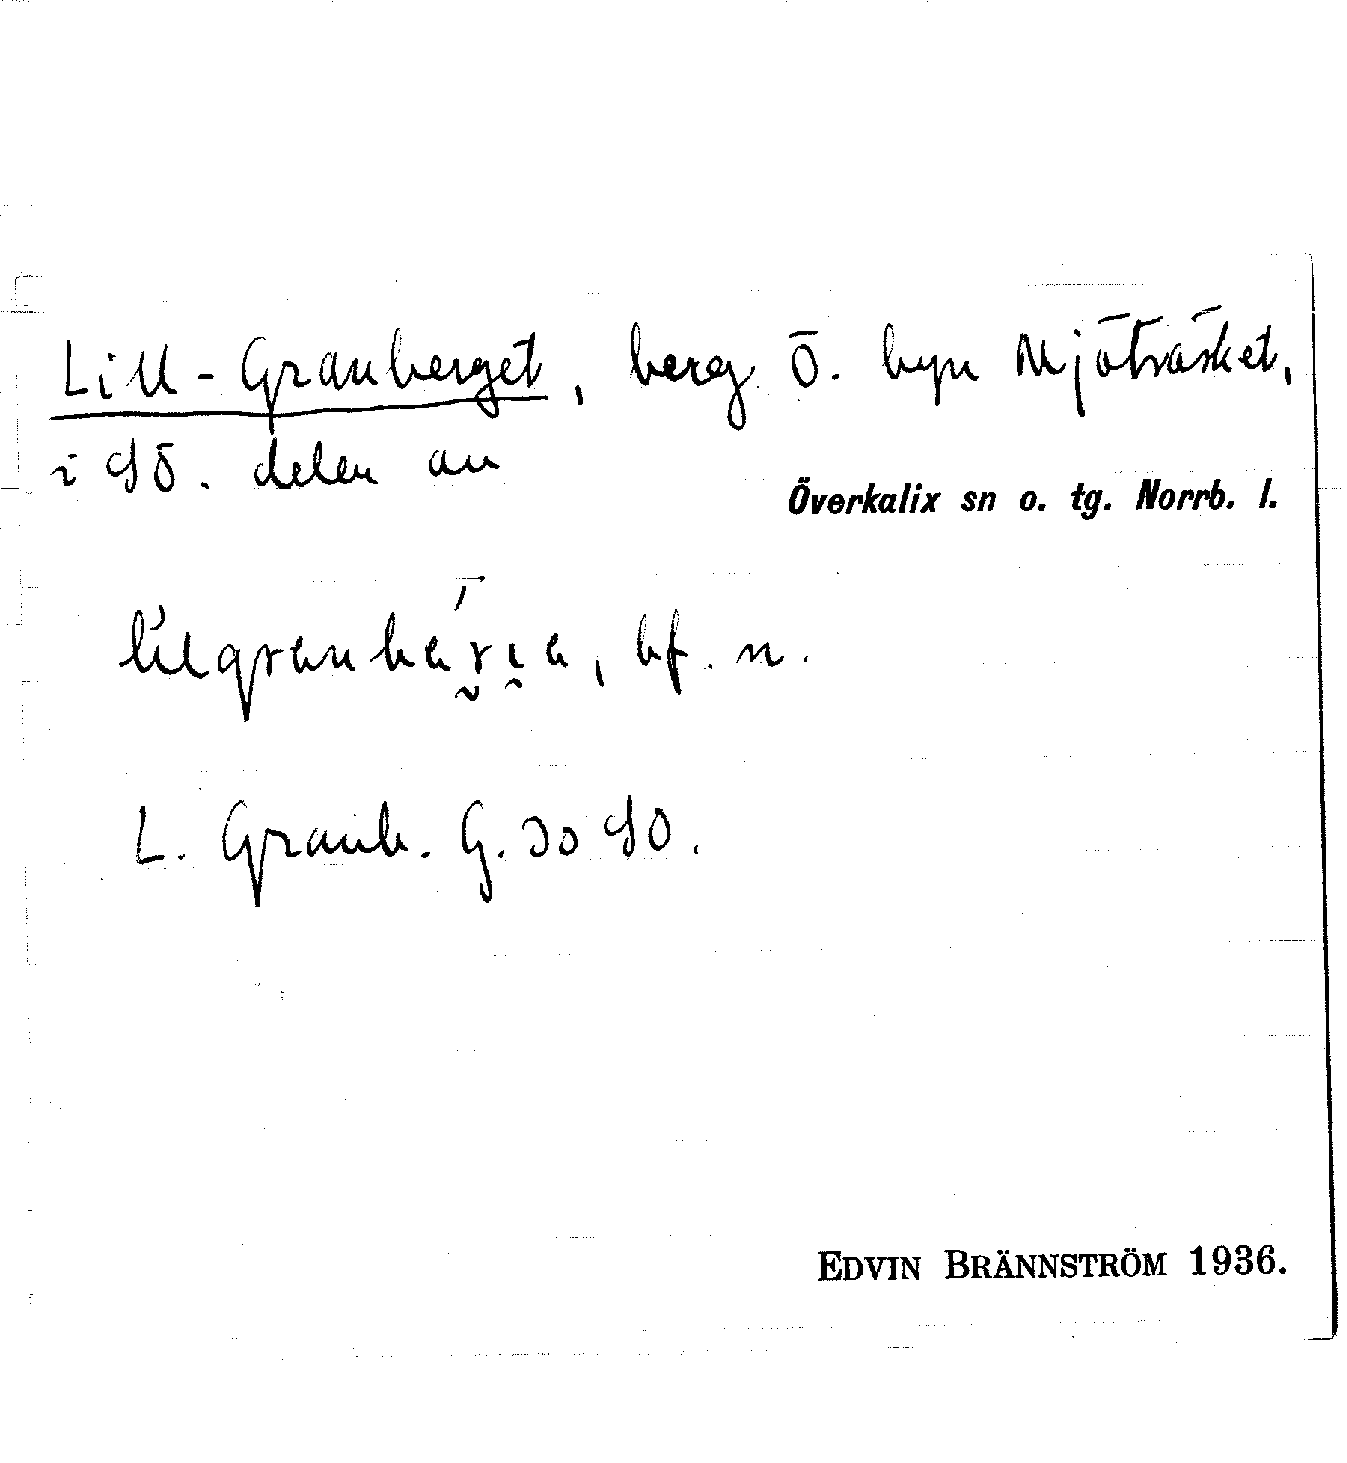 Lill-Granberget, berg Ö. byn Mjöträsket,
i SÖ. delen av
Överkalix sn o. tg. Norrb. l.
bf. n.
L. Granb. G. 30 SO.
EDVIN BRÄNNSTRÖM 1936.